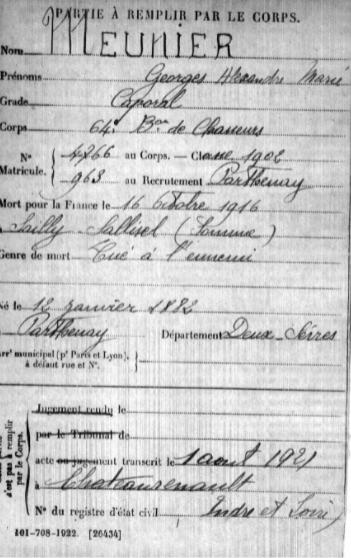 PARTIE À REMPLIR PAR LE CORPS.
Nom MEUNIER
Prénoms Georges Alexandre Marie
Grade Caporal
Corps 64e Bon de Chasseurs
N° Matricule. { 4266 au Corps. — Classe 1902
963 au Recrutement Parthenay
Mort pour la France le 16 Octobre 1916
à Sailly Sallisel (Somme)
Genre de mort Tué à l'ennemi
Né le 12 janvier 1882
à Parthenay Département Deux-Sèvres
Arrt municipal (pr Paris et Lyon), à défaut rue et N°. }
est pas à remplir par le Corps.
Jugement rendu le
par le Tribunal de
acte ou jugement transcrit le 1 aout 1921
à Chateaurenault
N° du registre d'état civil Indre et Loire
101-708-1922. [26434]